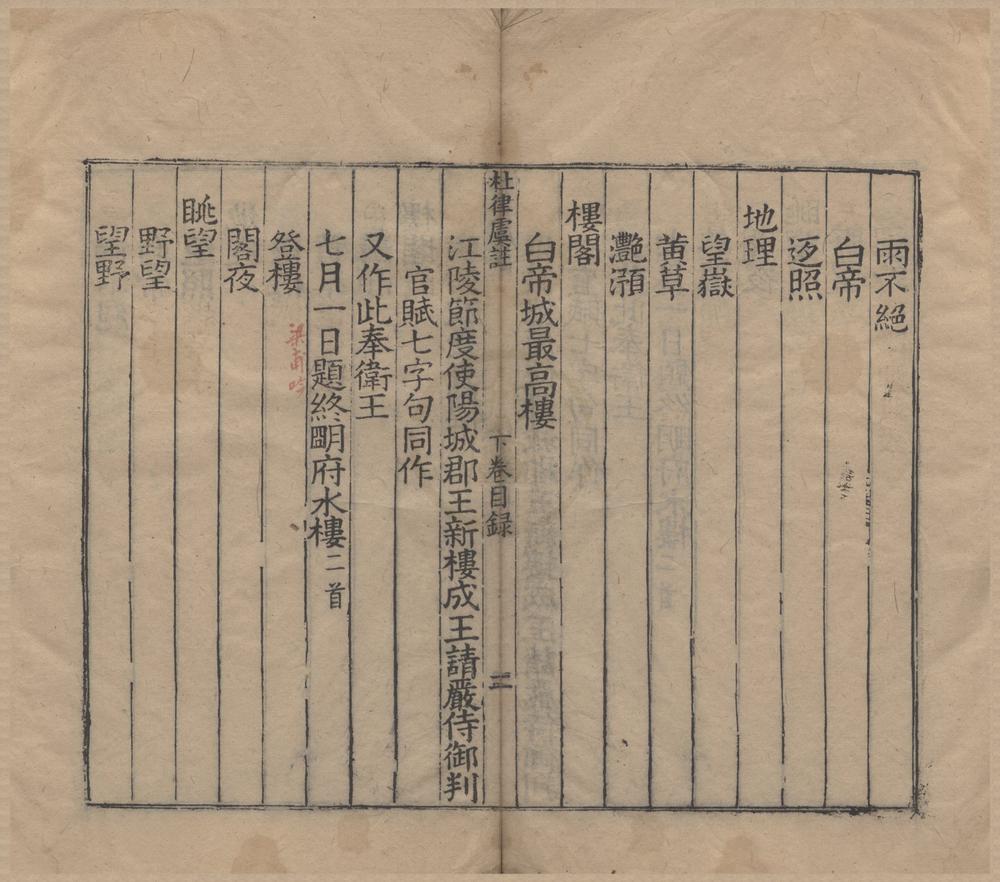 雨不絕
白帝
返照
地理
望嶽
黃草
灩澦
樓閣
白帝城最高樓
杜律虞註 下卷目録 三
江陵節度使陽城郡王新樓成王請嚴侍御判
官賦七字句同作
又作此奉衛王
七月一日題終明府水樓二首
登樓
梁甫吟
閣夜
眺望
野望
望野